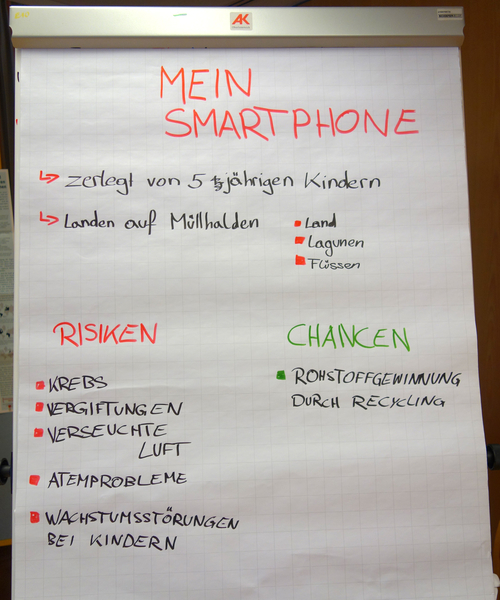 AK
MEIN
SMARTPHONE
zerlegt von 5 jährigen Kindern
Landen auf Müllhalden
Land
Lagunen
Flüssen
RISIKEN
CHANCEN
KREBS
VERGIFTUNGEN
VERSEUCHTE
LUFT
ATEMPROBLEME
WACHSTUMSSTÖRUNGEN
BEI KINDERN
ROHSTOFFGEWINNUNG
DURCH RECYCLING